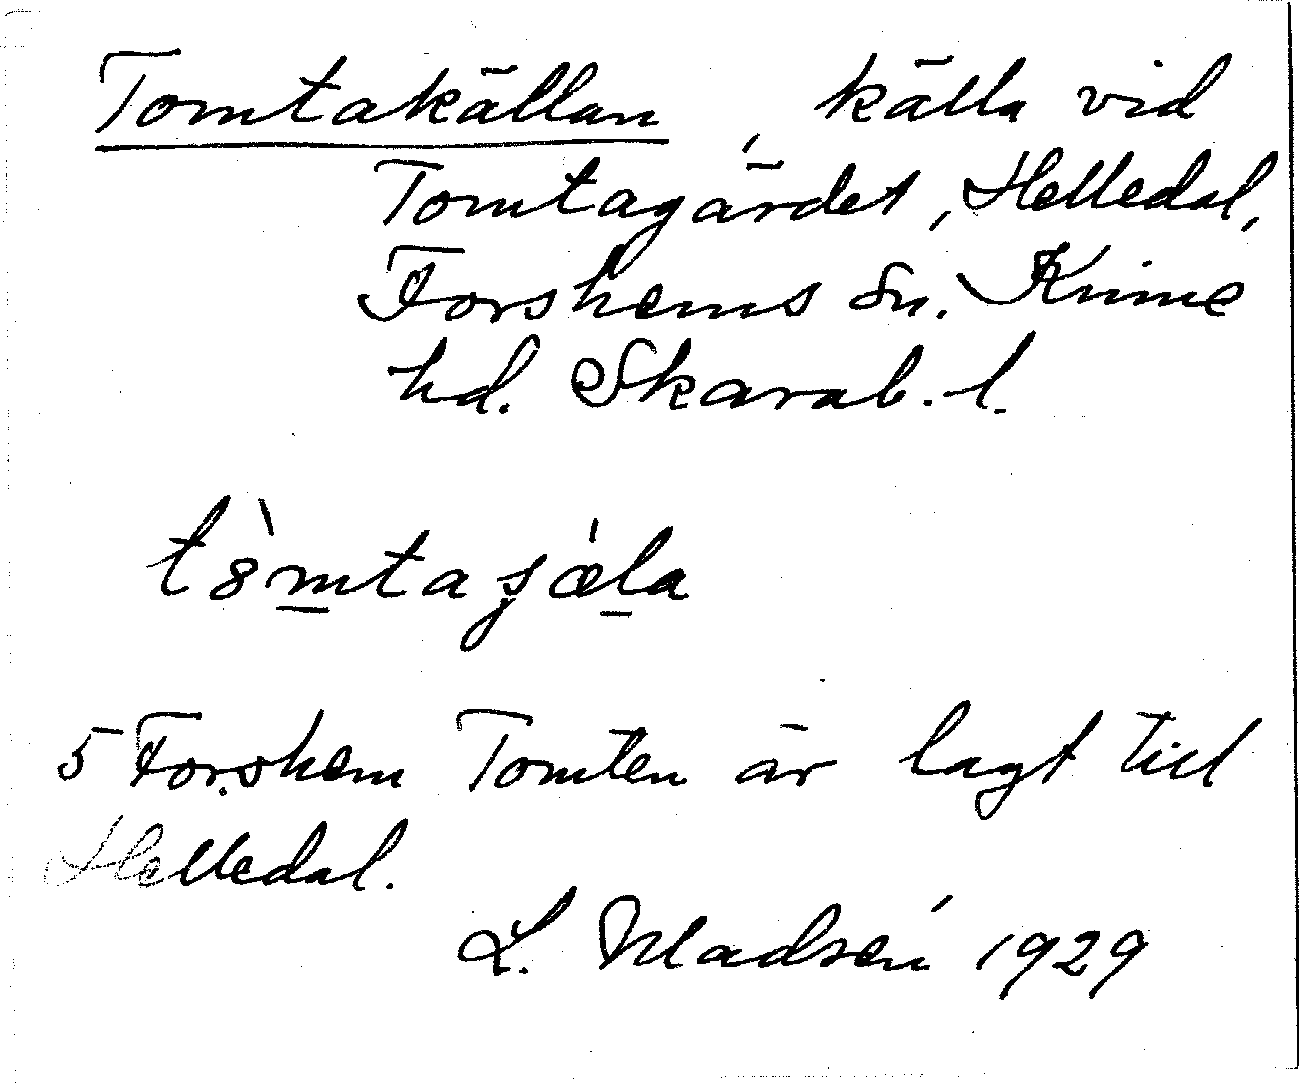 Tomtakällan, källa vid
Tomtagärdet, Helledal,
Forshems sn. Kinne
hd. Skarab. l.
tòmtaʂæ̀la
5 Forshem Tomten är lagt till
Helledal.
L. Madsén 1929